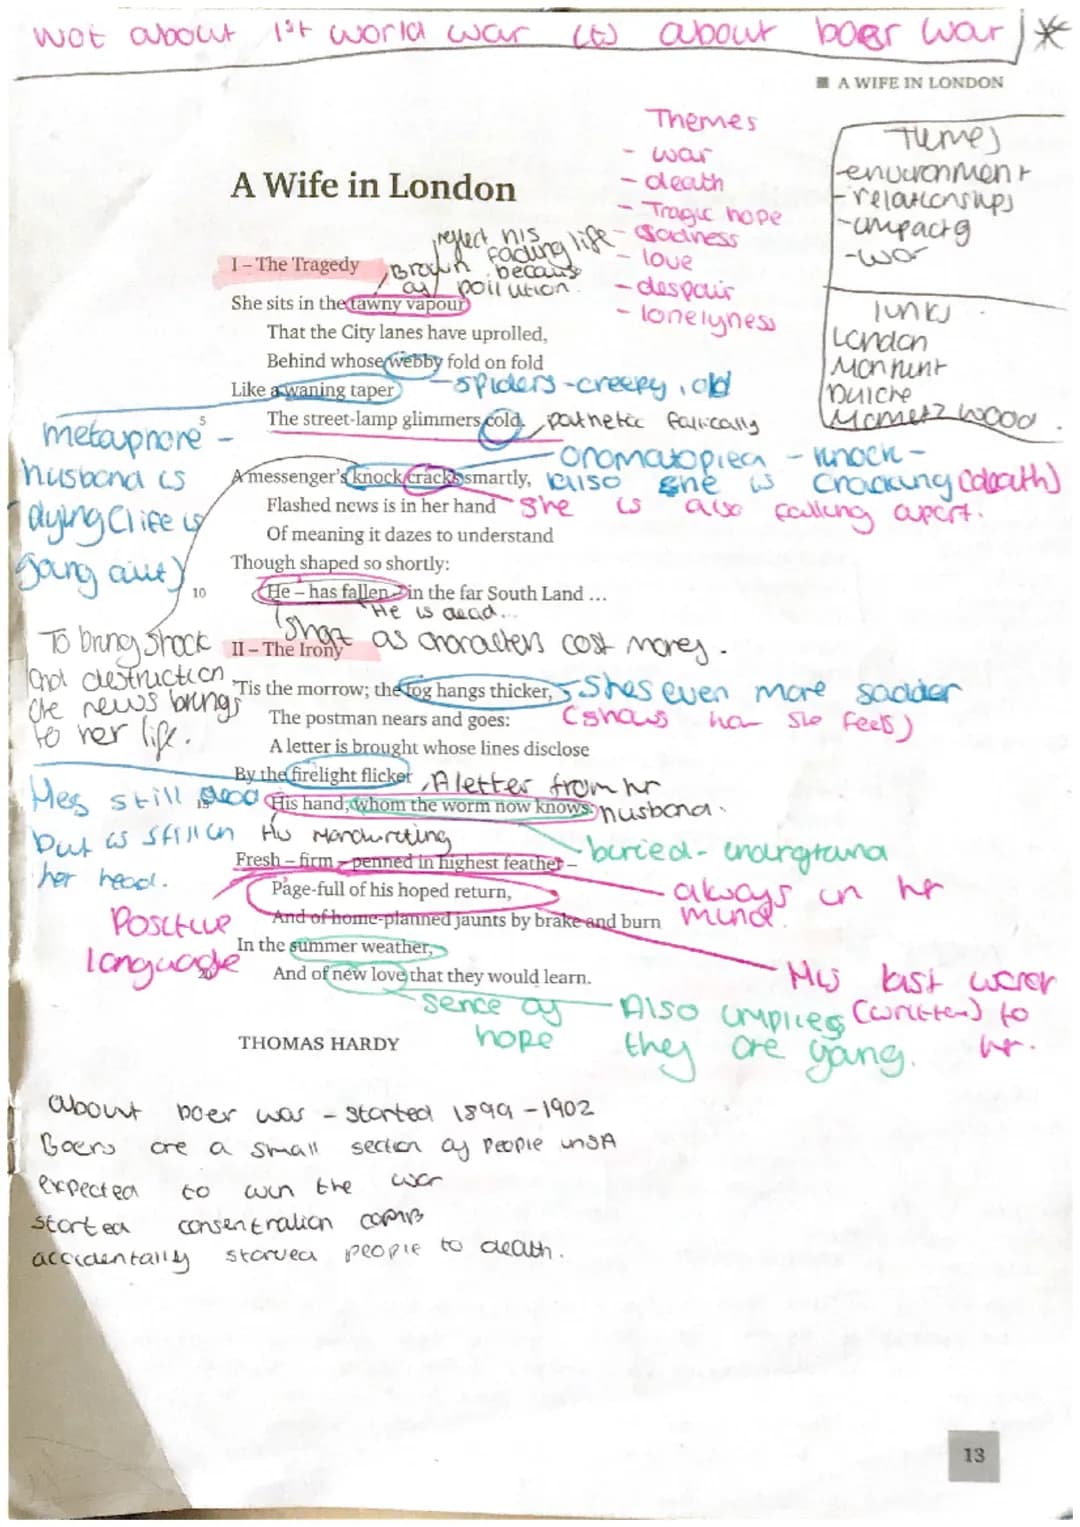 Not about 1st world war (it) about boer war *
■ A WIFE IN LONDON
Themes
- war
- death
- Tragic hope
- Sadness
- love
- despair
- lonelyness
Themes
- environment
- relationships
- impact of
- war
Links
London
Manhunt
Dulce
Mametz wood
A Wife in London
reflect his fading life
Brown because of pollution.
I – The Tragedy
She sits in the tawny vapour
That the City lanes have uprolled,
Behind whose webby fold on fold
Like a waning taper
5
The street-lamp glimmers cold.
- spiders - creepy, old
pathetic fallically
metaphore -
husband is
dying (life is
going out)
A messenger's knock cracks smartly,
Flashed news is in her hand
Of meaning it dazes to understand
Though shaped so shortly:
10
He – has fallen – in the far South Land ...
onomatopiea - knock -
also she is cracking (death)
she is also falling apart.
He is dead...
Short as characters cost money.
To bring shock
and destruction
the news brings
to her life.
II – The Irony
'Tis the morrow; the fog hangs thicker,
The postman nears and goes:
A letter is brought whose lines disclose
By the firelight flicker
15
His hand, whom the worm now knows:
Shes even more sadder
(shows how she feels)
A letter from hr
husband.
His Handwriting
Hes still dead
but is still in
her head.
buried - underground
Fresh – firm – penned in highest feather –
Page-full of his hoped return,
And of home-planned jaunts by brake and burn
In the summer weather,
20
And of new love that they would learn.
always in hr
mind.
Positive
language
His last word
(written) to
hr.
sence of
hope
Also implies
they are young.
THOMAS HARDY
about boer war - started 1899 - 1902
Boers are a small section of people in SA
expected to win the war
started consentration camps
accidentally starved people to death.
13